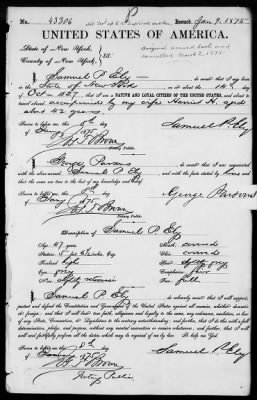 No. 43306 Issued Jan 9. 1875
UNITED STATES OF AMERICA.
State of New York,
County of New York, ss:
Original
cancelled
I, Samuel P. Ely do swear that I was born
in the State of New York on the 14th
Oct 1827 that I am a NATIVE AND LOYAL CITIZEN OF THE UNITED STATES, and about to
travel accompanied by my wife Harriet H. aged
about 42 years
Sworn to before me, this 8th
day of Jany 1875 Samuel P. Ely
Notary Public.
I, George Parsons do swear that I am acquainted
with the above-named Samuel P. Ely and with the facts stated by him
Sworn to before me, this 8th
day of Jany 1875 George Parsons
Notary Public.
Description of Samuel P. Ely
Age: 47 years Mouth:
Stature: 5 feet inches Chin:
Forehead: high Hair:
Eyes: grey Complexion: fair
Nose: Face: full
I, Samuel P. Ely do solemnly swear that I will support,
protect, and defend the Constitution and Government of the United States against all enemies, whether domestic
or foreign; and that I will bear true faith, allegiance, and loyalty to the same, any ordinance, resolution, or law
of any State, Convention, or Legislature to the contrary notwithstanding; and further, that I do this with a full
determination, pledge, and purpose, without any mental reservation or evasion whatsoever; and further, that I will
well and faithfully perform all the duties which may be required of me by law. So help me God.
Sworn to before me, this 8th
day of January 1875 Samuel P. Ely
Notary Public